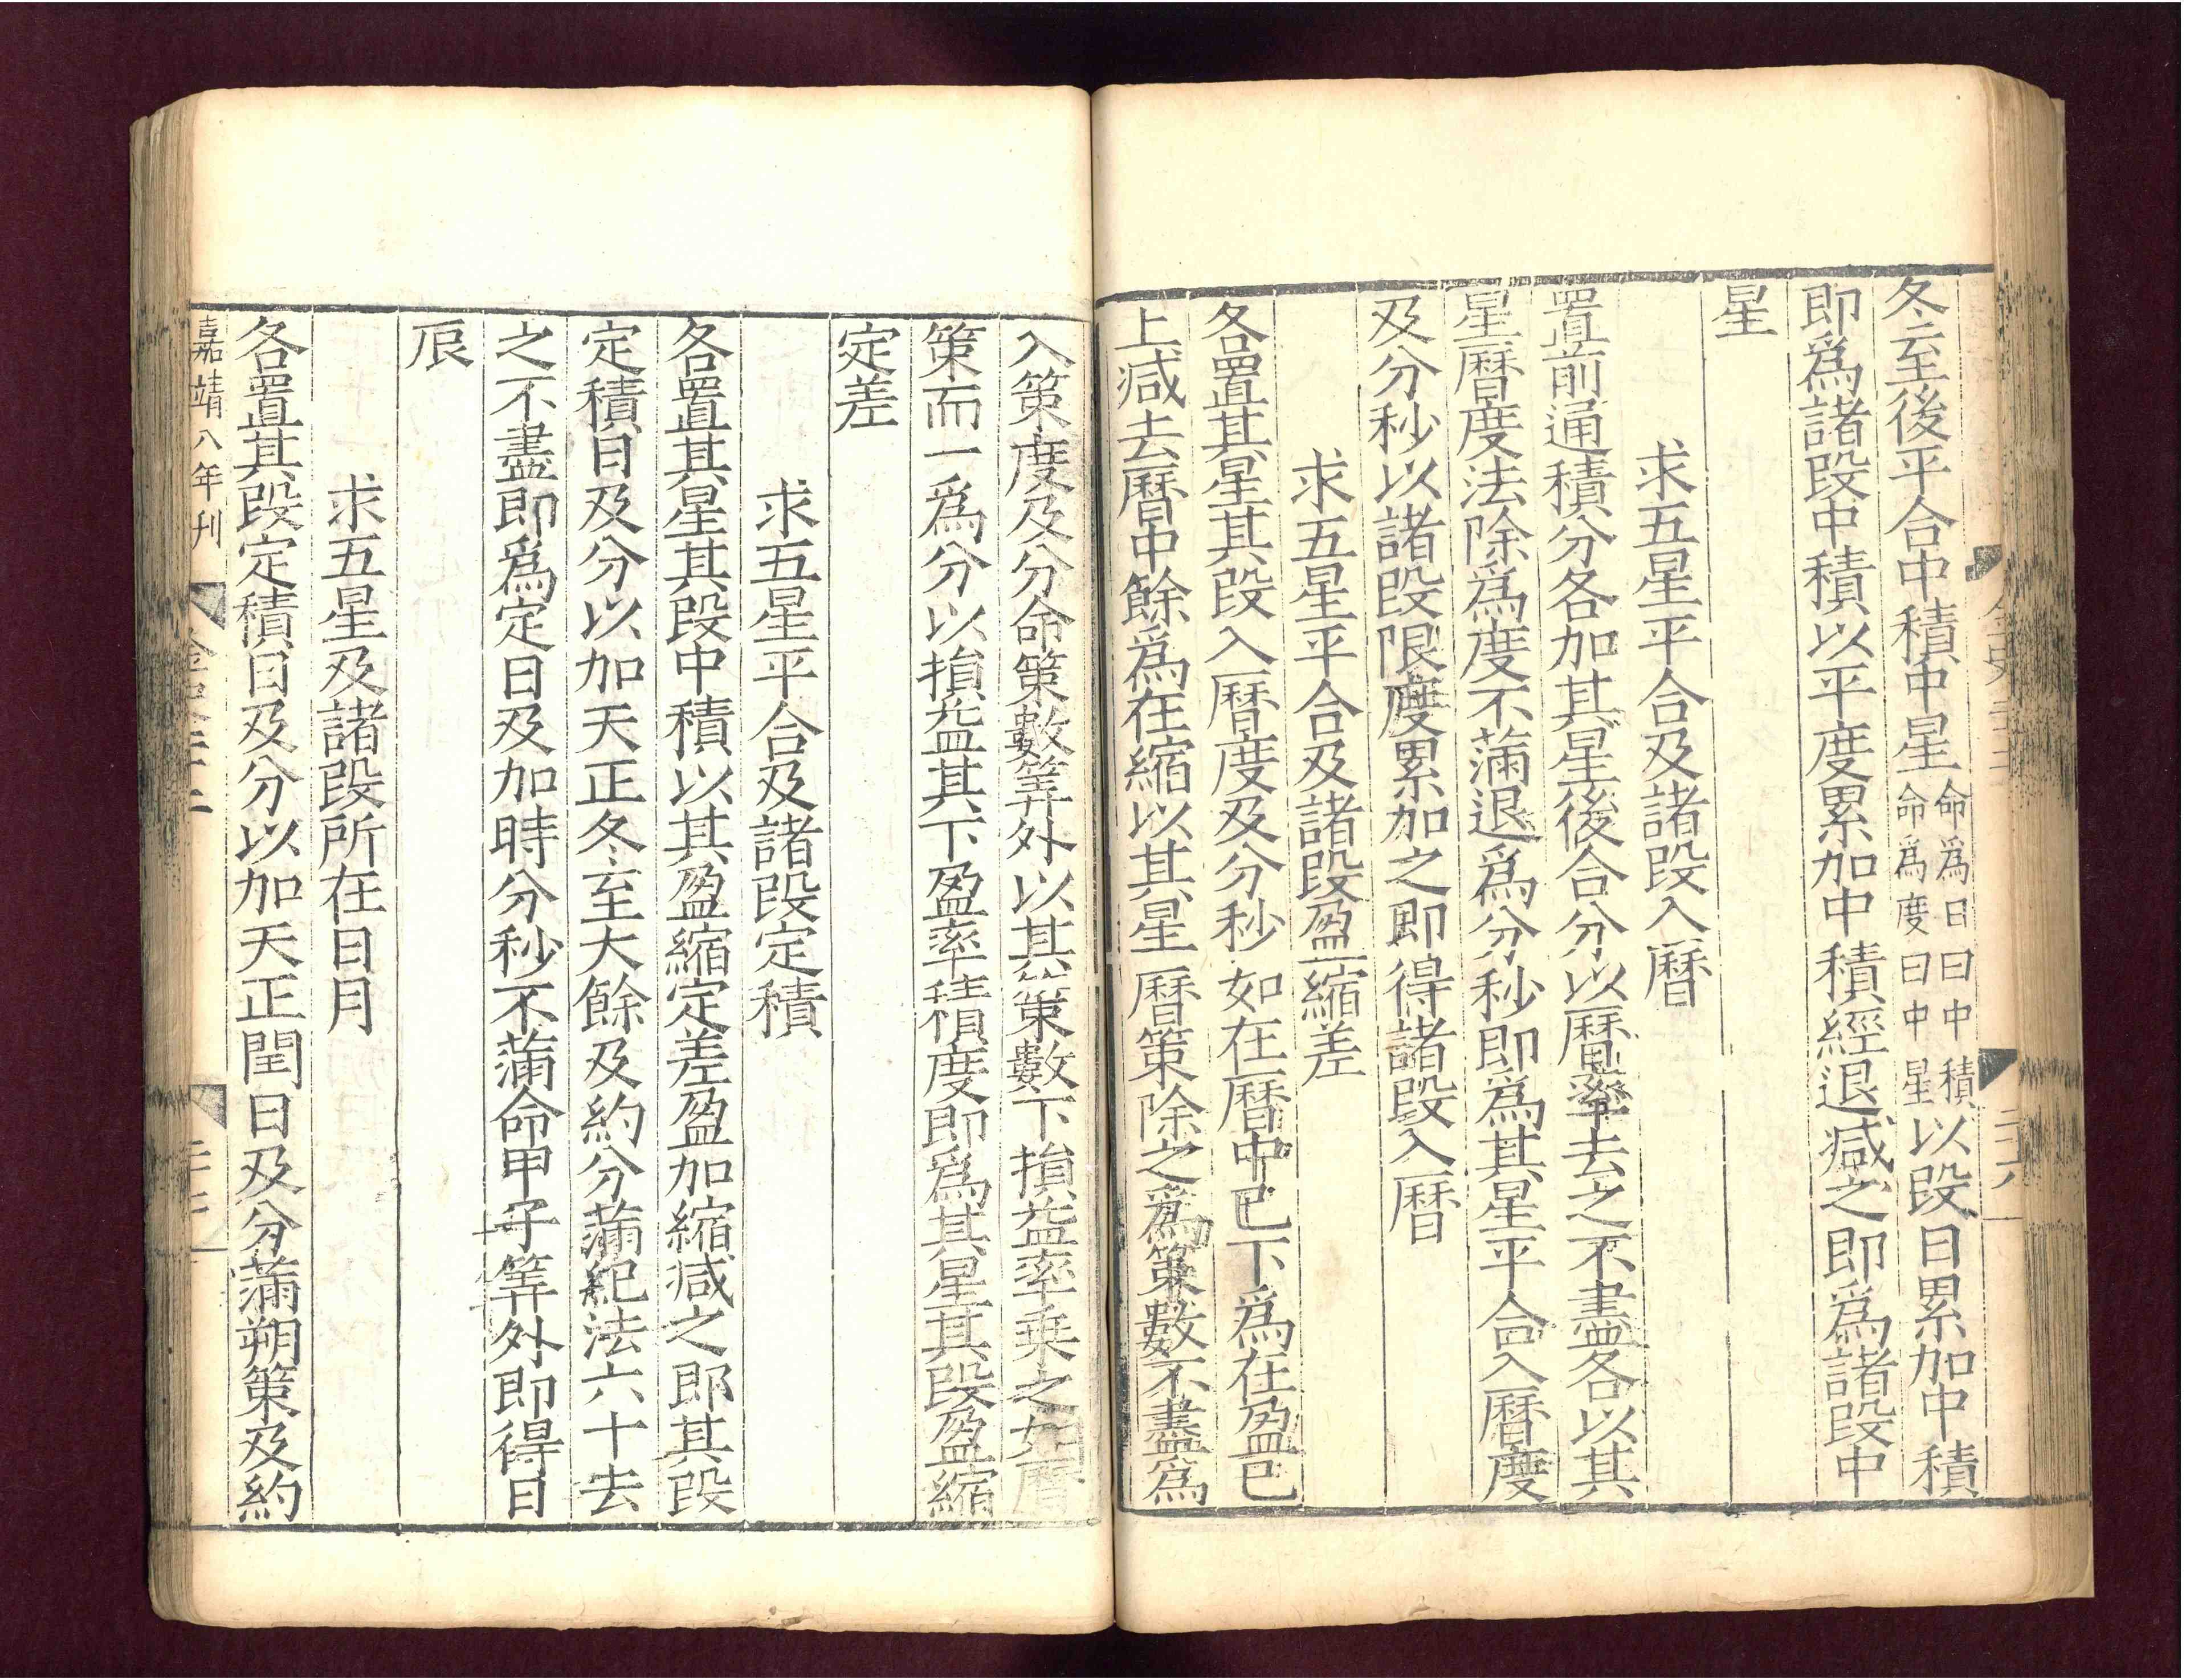 冬至後平合中積中星命爲日曰中積命爲度曰中星以段日累加中積
即爲諸段中積以平度累加中積經退減之即爲諸段中
星
求五星平合及諸段入曆
置前通積分各加其星後合分以曆率去之不盡各以其
星曆度法除爲度不滿退爲分秒即爲其星平合入曆度
及分秒以諸段限度累加之即得諸段入曆
求五星平合及諸段盈縮差
各置其星其段入曆度及分秒如在曆中已下爲在盈已
上減去曆中餘爲在縮以其星曆策除之爲策數不盡爲
入策度及分命策數筭外以其策數下損益率乘之如曆
策而一爲分以損益其下盈率積度即爲其星其段盈縮
定差
求五星平合及諸段定積
各置其星其段中積以其盈縮定差盈加縮減之即其段
定積日及分以加天正冬至大餘及約分滿紀法六十去
之不盡即爲定日及加時分秒不滿命甲子筭外即得日
辰
求五星及諸段所在日月
各置其段定積日及分以加天正閏日及分滿朔策及約
嘉靖八年刊